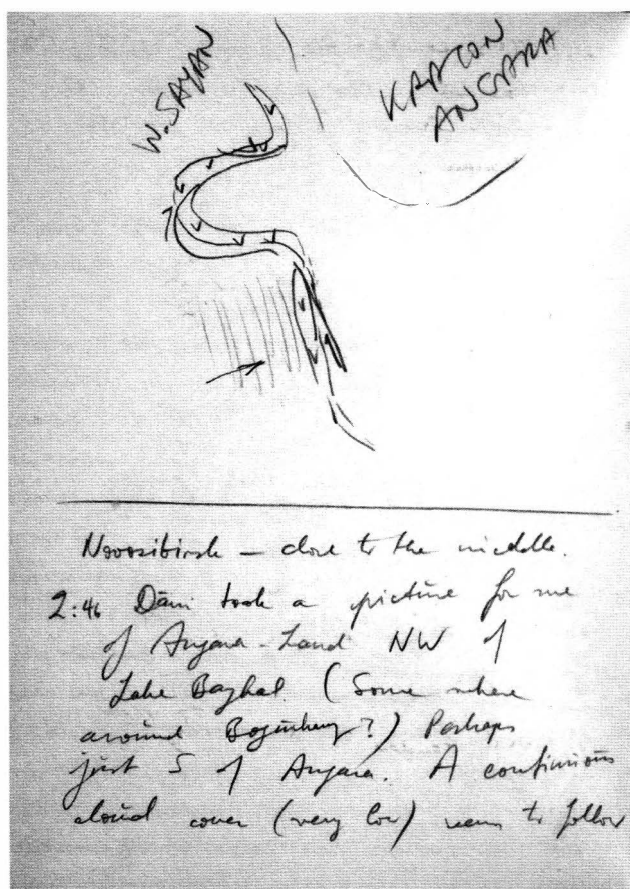 W. SAYAN
KRATON
ANGARA
Novosibirsk — close to the middle.
2:46 Dani took a picture for me
of Angara-Land NW of
Lake Baykal. (Some where
around ?) Perhaps
just S of Angara. A continuous
cloud cover (very low) seems to follow